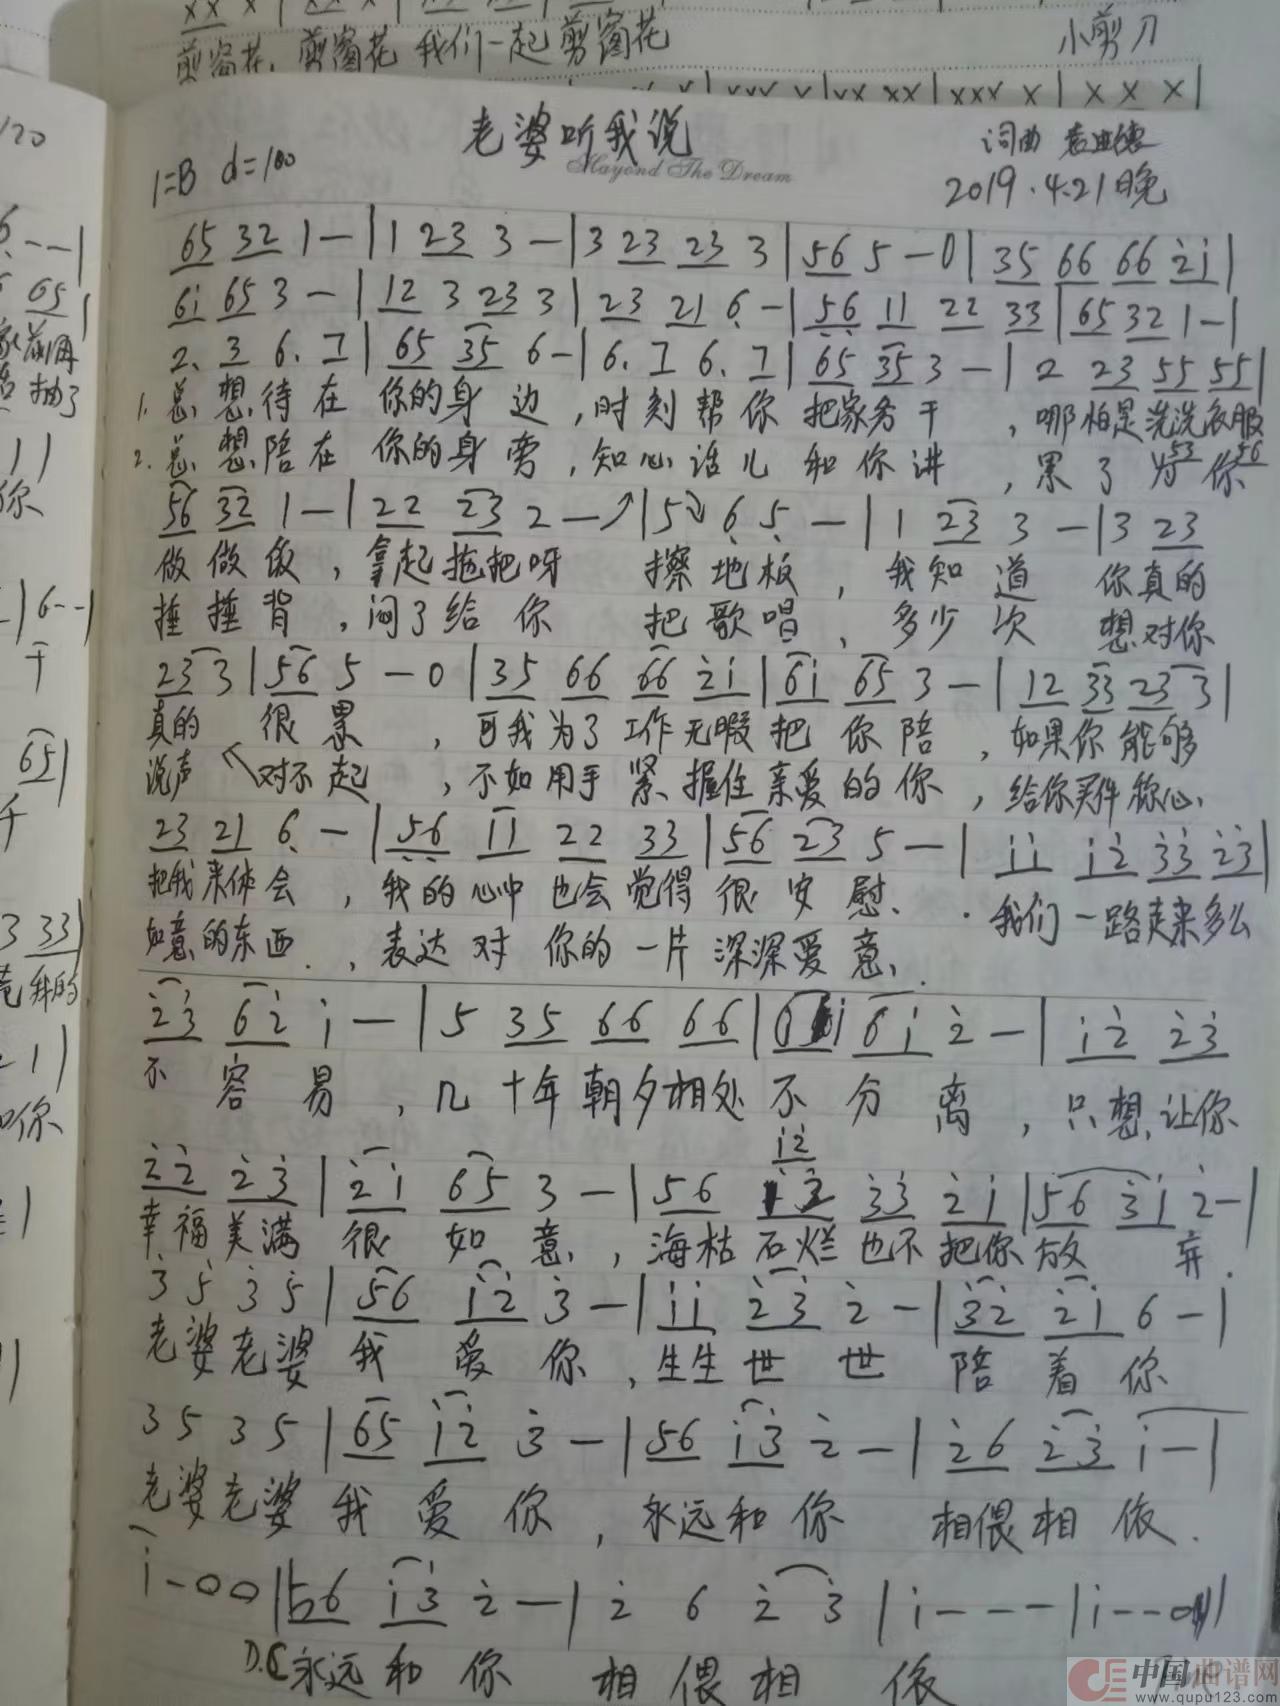 剪窗花,剪窗花 我们一起剪窗花 小剪刀
老婆听我说
Mayond The Dream
词曲
1=B d=100
2019.4.21晚
65 32 1 - | 1 23 3 - | 3 23 23 3 | 56 5 - 0 | 35 66 66 2̇1̇ |
61̇ 65 3 - | 12 3 23 3 | 23 21 6̣ - | 5̣6̣ 11 22 33 | 65 32 1 - |
2. 3 6. 7 | 65 35 6 - | 6. 7 6. 7 | 65 35 3 - | 2 23 55 55 |
1. 总想待在你的身边,时刻帮你把家务干,哪怕是洗洗衣服
2. 总想陪在你的身旁,知心话儿和你讲,累了为你
53 56
56 32 1 - | 22 23 2 - ↗ | 5 6̣ 5̣ - | 1 23 3 - | 3 23
做做饭,拿起拖把呀 擦地板,我知道 你真的
捶捶背,闷了给你 把歌唱,多少次 想对你
23 3 | 56 5 - 0 | 35 66 66 2̇1̇ | 61̇ 65 3 - | 12 33 23 3 |
真的 很累,可我为了工作无暇把你陪,如果你能够
说声 对不起,不如用手紧握住亲爱的你,给你买件称心
23 21 6̣ - | 5̣6̣ 11 22 33 | 56 23 5 - | 1̇1̇ 1̇2̇ 3̇3̇ 2̇3̇ |
把我来体会,我的心中也会觉得很安慰. 我们一路走来多么
如意的东西.,表达对你的一片深深爱意.
2̇3̇ 62̇ 1̇ - | 5 35 66 66 | 61̇ 2̇ - | 1̇2̇ 2̇3̇
不容易,几十年朝夕相处不分离,只想让你
1̇2̇
2̇2̇ 2̇3̇ | 2̇1̇ 65 3 - | 56 3̇3̇ 2̇1̇ | 56 3̇1̇ 2̇ - |
幸福美满很如意,海枯石烂也不把你放弃.
3 5 3 5 | 56 1̇2̇ 3̇ - | 1̇1̇ 2̇3̇ 2̇ - | 3̇2̇ 2̇1̇ 6 - |
老婆老婆我爱你,生生世世陪着你
3 5 3 5 | 65 1̇2̇ 3̇ - | 56 1̇3̇ 2̇ - | 2̇6 2̇3̇ 1̇ - |
老婆老婆我爱你,永远和你 相偎相依.
1̇ - 0 0 | 56 1̇3̇ 2̇ - | 2̇ 6 2̇ 3̇ | 1̇ - - - | 1̇ - - 0 |
D.C 永远和你 相偎相依
中国曲谱网
www.qupu123.com